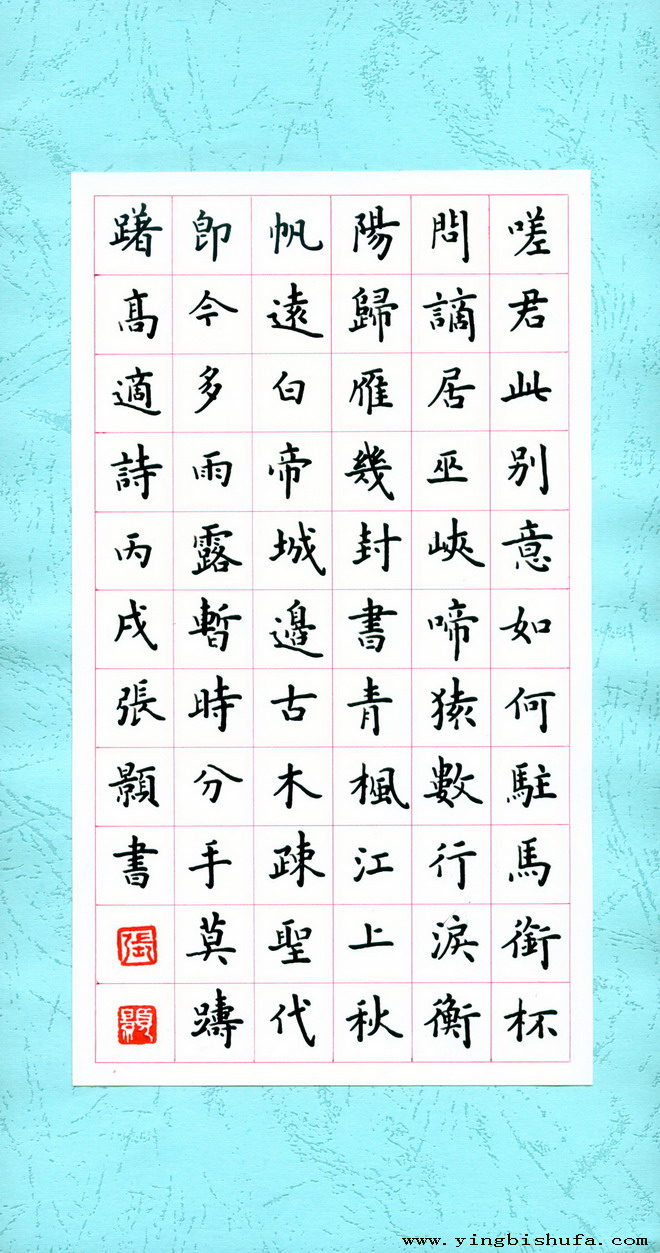 嗟君此别意如何駐馬銜杯
問謫居巫峽啼猿數行淚衡
陽歸雁幾封書青楓江上秋
帆遠白帝城邊古木疎聖代
即今多雨露暫時分手莫躊
躇高適詩丙戌張顥書
張
顥
www.yingbishufa.com